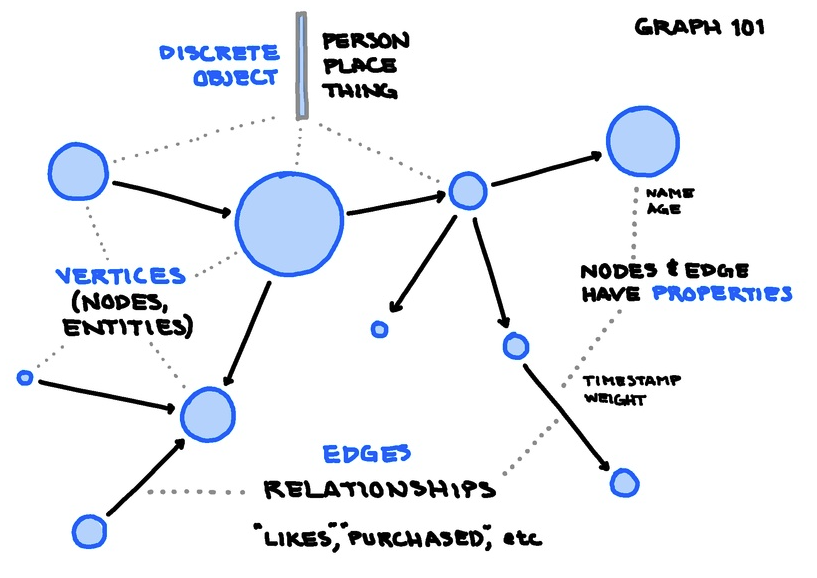 GRAPH 101
DISCRETE
OBJECT
PERSON
PLACE
THING
NAME
AGE
VERTICES
(NODES,
ENTITIES)
NODES & EDGE
HAVE PROPERTIES
TIMESTAMP
WEIGHT
EDGES
RELATIONSHIPS
"LIKES", "PURCHASED", etc